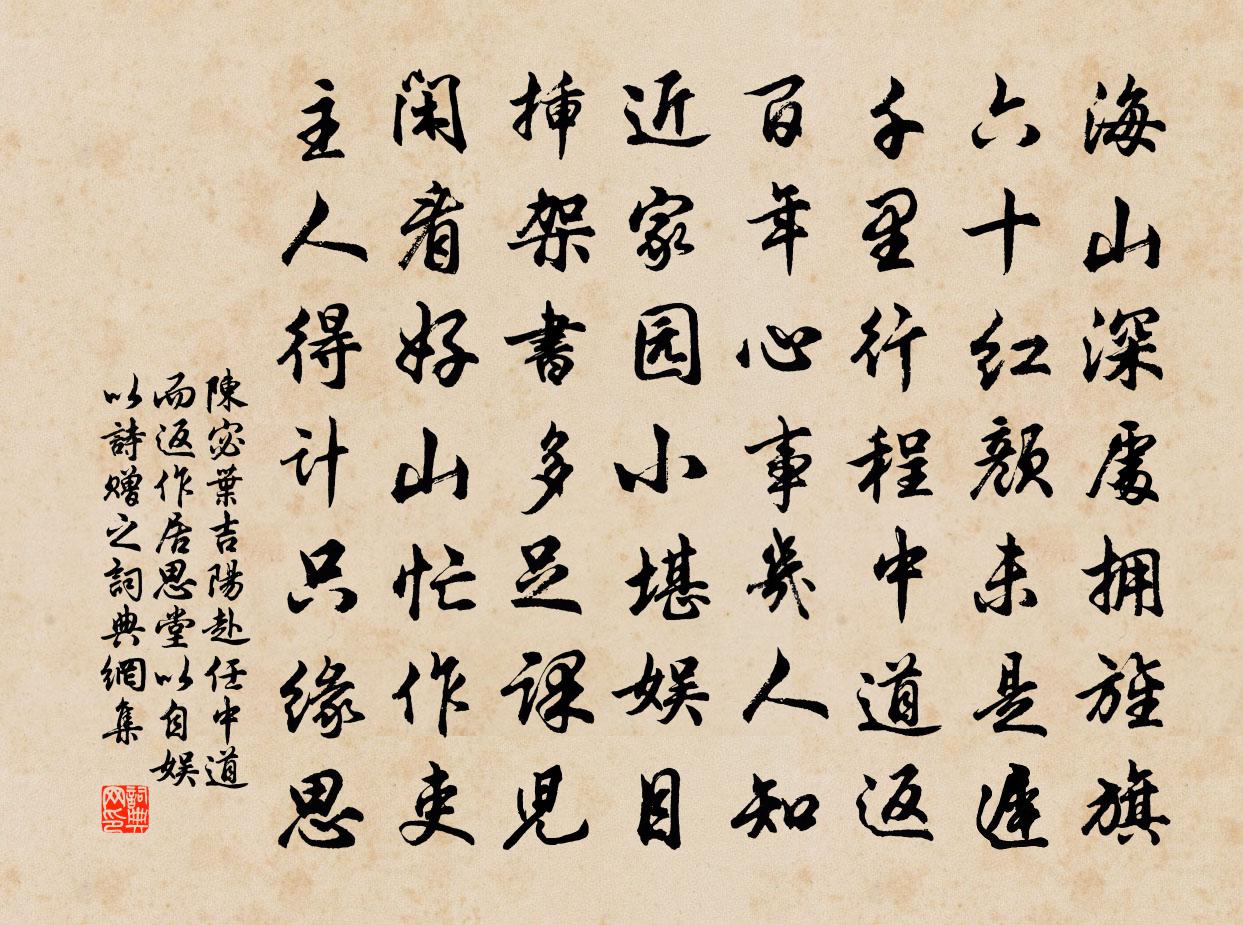 海山深處拥旌旗
六十红颜未是遲
千里行程中道返
百年心事幾人知
近家园小堪娱目
挿架書多足課兒
閑看好山忙作吏
主人得计只缘思
陳宓葉吉陽赴任中道
而返作居思堂以自娱
以詩赠之詞典網集
詞典
网印